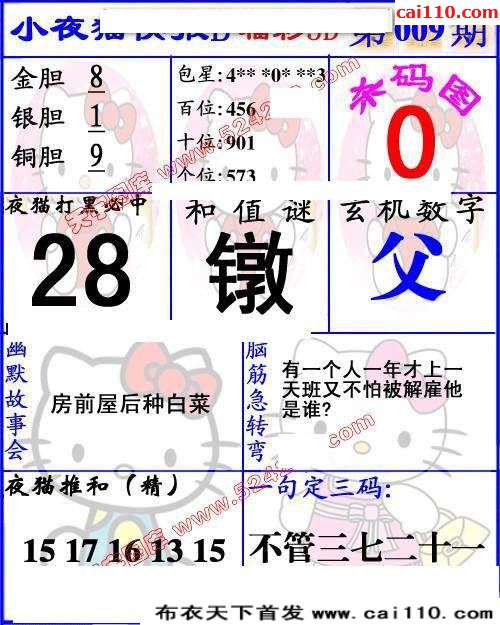 cai110.com
小夜猫快报D 福彩3D 第009期
金胆 8
银胆 1
铜胆 9
包星:4** *0* **3
百位:456
十位:901
个位:573
杀码图
0
夜猫打黑必中
28
和值谜
镦
玄机数字
父
幽默故事会
房前屋后种白菜
脑筋急转弯
有一个人一年才上一
天班又不怕被解雇他
是谁?
夜猫推和（精）
15 17 16 13 15
一句定三码:
不管三七二十一
布衣天下首发 www.cai110.com